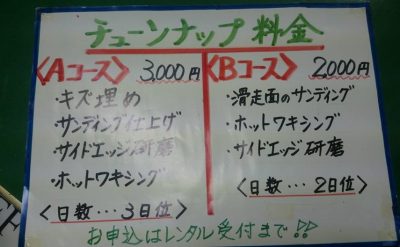 チューンナップ料金
〈Aコース〉 3,000円
・キズ埋め
・サンディング仕上げ
・サイドエッジ研磨
・ホットワキシング
〈日数…3日位〉
〈Bコース〉 2,000円
・滑走面のサンディング
・ホットワキシング
・サイドエッジ研磨
〈日数…2日位〉
お申込はレンタル受付まで!!